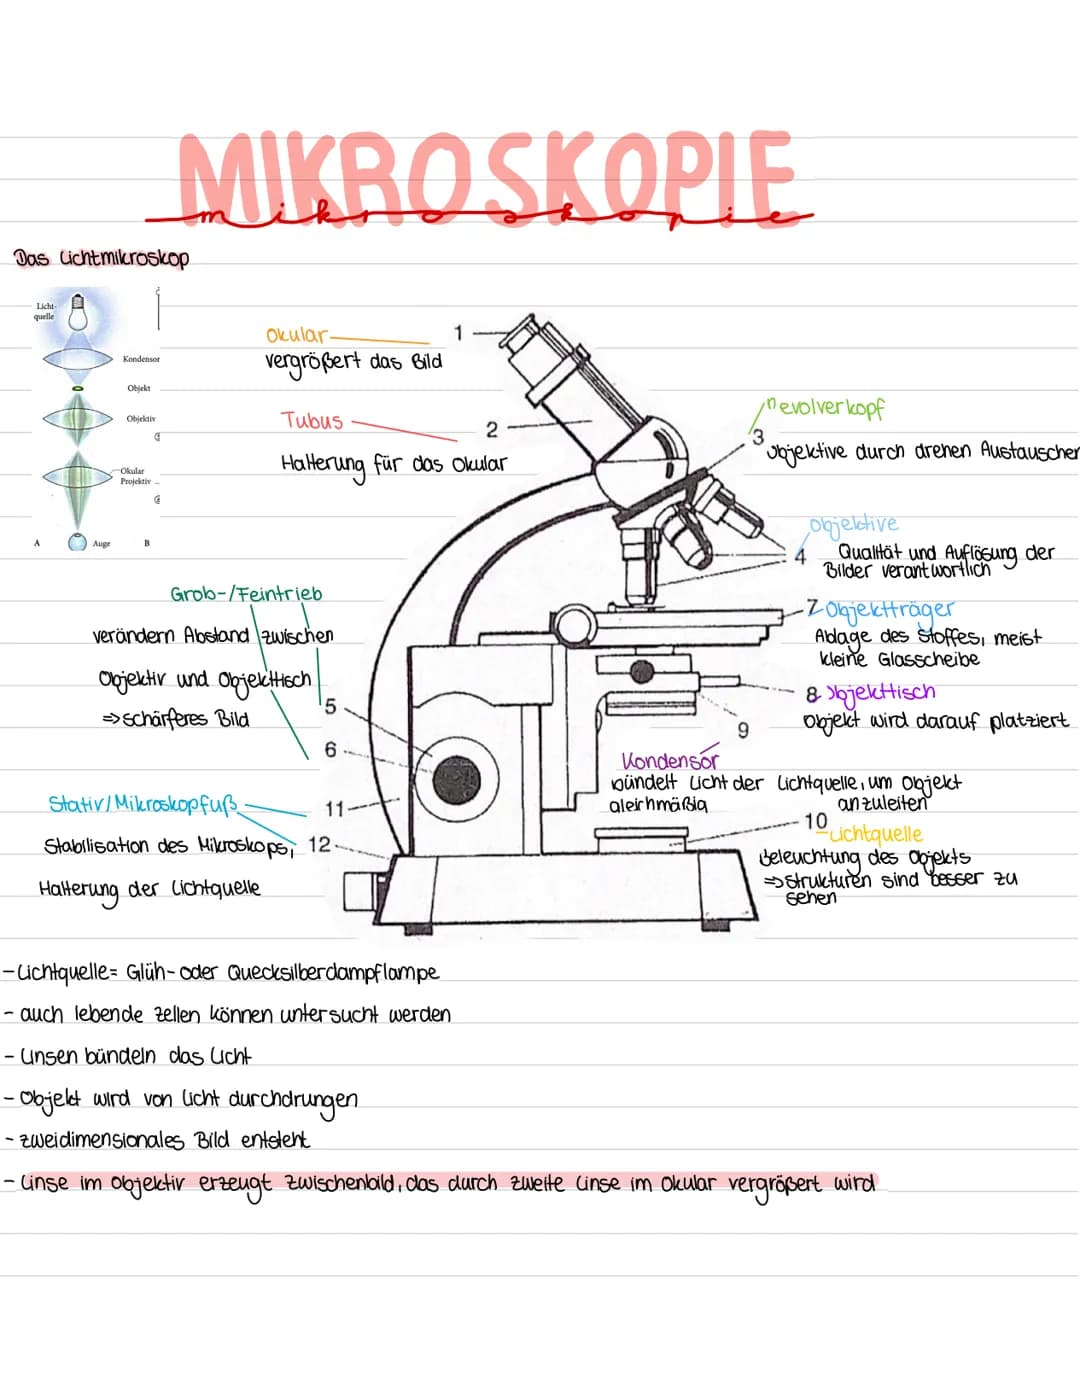 MIKROSKOPIE
mikroskopie
Das Lichtmikroskop
Licht-
quelle
Kondensor
Objekt
Objektiv
Okular
Projektiv ..
A
Auge
B
Okular
vergrößert das Bild
1
Tubus
2
Halterung für das Okular
Revolverkopf
3
Objektive durch drehen Austauschen
Objektive
4
Qualität und Auflösung der
Bilder verantwortlich
7 Objektträger
Ablage des Stoffes, meist
kleine Glasscheibe
8 Objekttisch
Objekt wird darauf platziert
9
Kondensor
bündelt Licht der Lichtquelle, um Objekt
gleichmäßig anzuleiten
10
Lichtquelle
Beleuchtung des Objekts
⇒ Strukturen sind besser zu
sehen
Grob-/Feintrieb
verändern Abstand zwischen
Objektiv und Objekttisch
⇒ schärferes Bild
5
6
Stativ/Mikroskopfuß
11
Stabilisation des Mikroskops,
12
Halterung der Lichtquelle
- Lichtquelle= Glüh- oder Quecksilberdampflampe
- auch lebende Zellen können untersucht werden
- Linsen bündeln das Licht
- Objekt wird von Licht durchdrungen
- zweidimensionales Bild entsteht
- Linse im Objektiv erzeugt Zwischenbild, das durch zweite Linse im Okular vergrößert wird